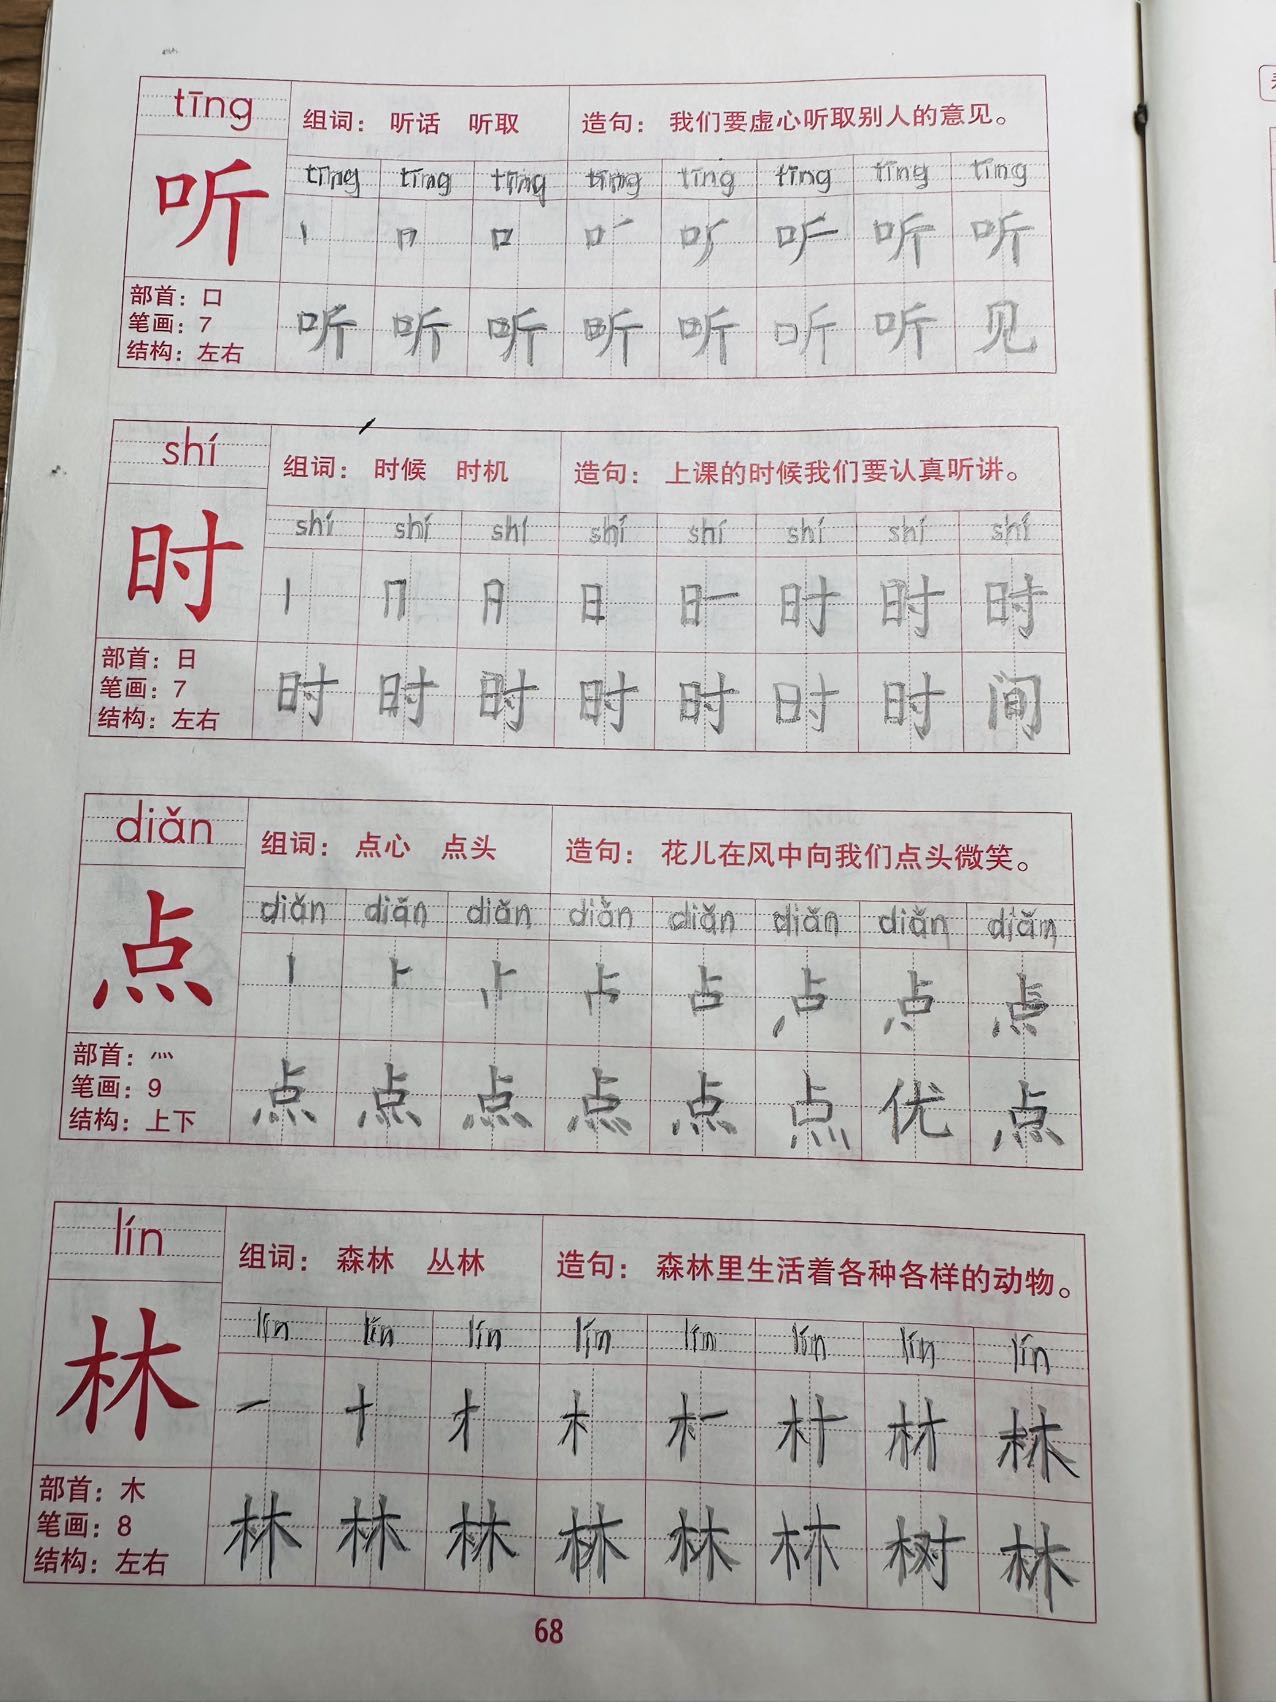 tīng
组词： 听话 听取 造句： 我们要虚心听取别人的意见。
tīng tīng tīng tīng tīng tīng tīng tīng
听
丨 口 口 听 听
部首：口
笔画：7
结构：左右
听 听 听 听 听 听 听 见
shí
组词： 时候 时机 造句： 上课的时候我们要认真听讲。
shí shí shí shí shí shí shí shí
时
丨 冂 日 日 时 时 时
部首：日
笔画：7
结构：左右
时 时 时 时 时 时 时 间
diǎn
组词： 点心 点头 造句： 花儿在风中向我们点头微笑。
diǎn diǎn diǎn diǎn diǎn diǎn diǎn diǎn
点
丨 ⺊ 占 点
部首：灬
笔画：9
结构：上下
点 点 点 点 点 点 优 点
lín
组词： 森林 丛林 造句： 森林里生活着各种各样的动物。
lín lín lín lín lín lín lín lín
林
一 十 才 木 村 材 林
部首：木
笔画：8
结构：左右
林 林 林 林 林 林 树 林
68